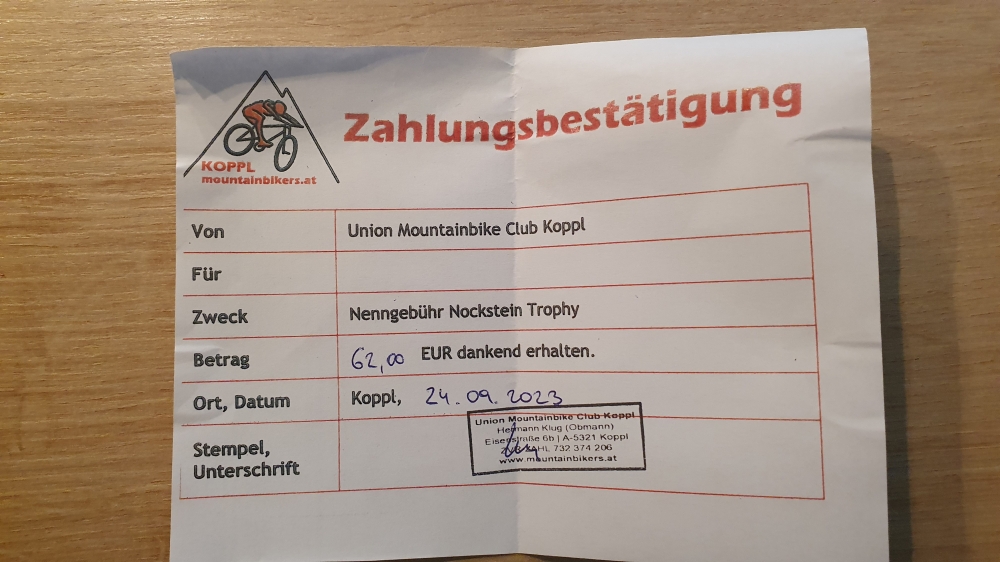 KOPPL
mountainbikers.at
Zahlungsbestätigung
Von Union Mountainbike Club Koppl
Für
Zweck Nenngebühr Nockstein Trophy
Betrag 62,00 EUR dankend erhalten.
Ort, Datum Koppl, 24.09.2023
Stempel,
Unterschrift
Union Mountainbike Club Koppl
Hermann Klug (Obmann)
6b | A-5321 Koppl
732 374 206
www.mountainbikers.at